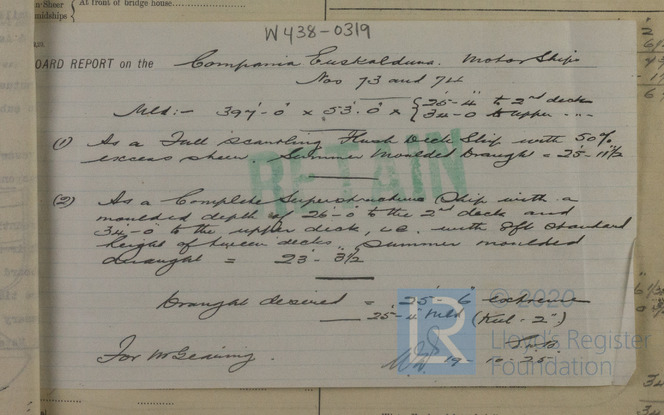 n-Sheer At front of bridge house
midships)
W438-0319
OARD REPORT on the
Compania Euskalduna. Motor Ships
Nos 73 and 74
Mld:- 397'-0 x 53.0 x { 25-4 to 2nd deck
34-0 to upper "
(1) As a Full scantling Flush Deck Ship with 50%
excess sheer. Summer Moulded Draught = 25'-11½
(2) As a Complete Superstructure Ship with a
moulded depth of 26-0 to the 2nd deck and
34-0 to the upper deck, i.e. with 8ft standard
height of tween decks, Summer moulded
draught = 23'-3½
RETAIN
Draught desired = 25' 6" extreme
25-4 Mld (Keel-2")
19-10-25
© 2020
LR
Lloyd's Register
Foundation